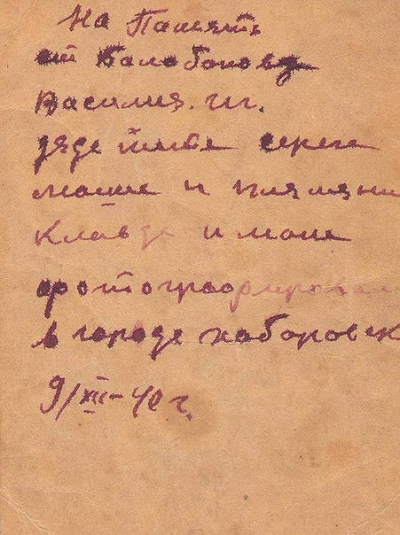 На Память
от Балобонова
Василия. ги.
дяде тите сереге
маше и племяни
Клавде и мане
фотографирован
в городе хаборовск
9/XII-40 г.